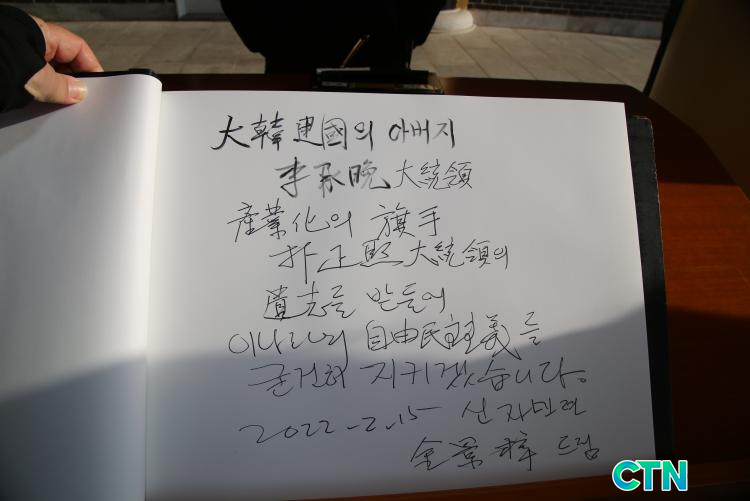 大韓建國의 아버지
李承晩 大統領
産業化의 旗手
朴正熙 大統領의
遺志를 받들어
이나라의 自由民主主義를
굳건히 지키겠습니다.
2022-2.15 신자민련
金景梓 드림
CTN